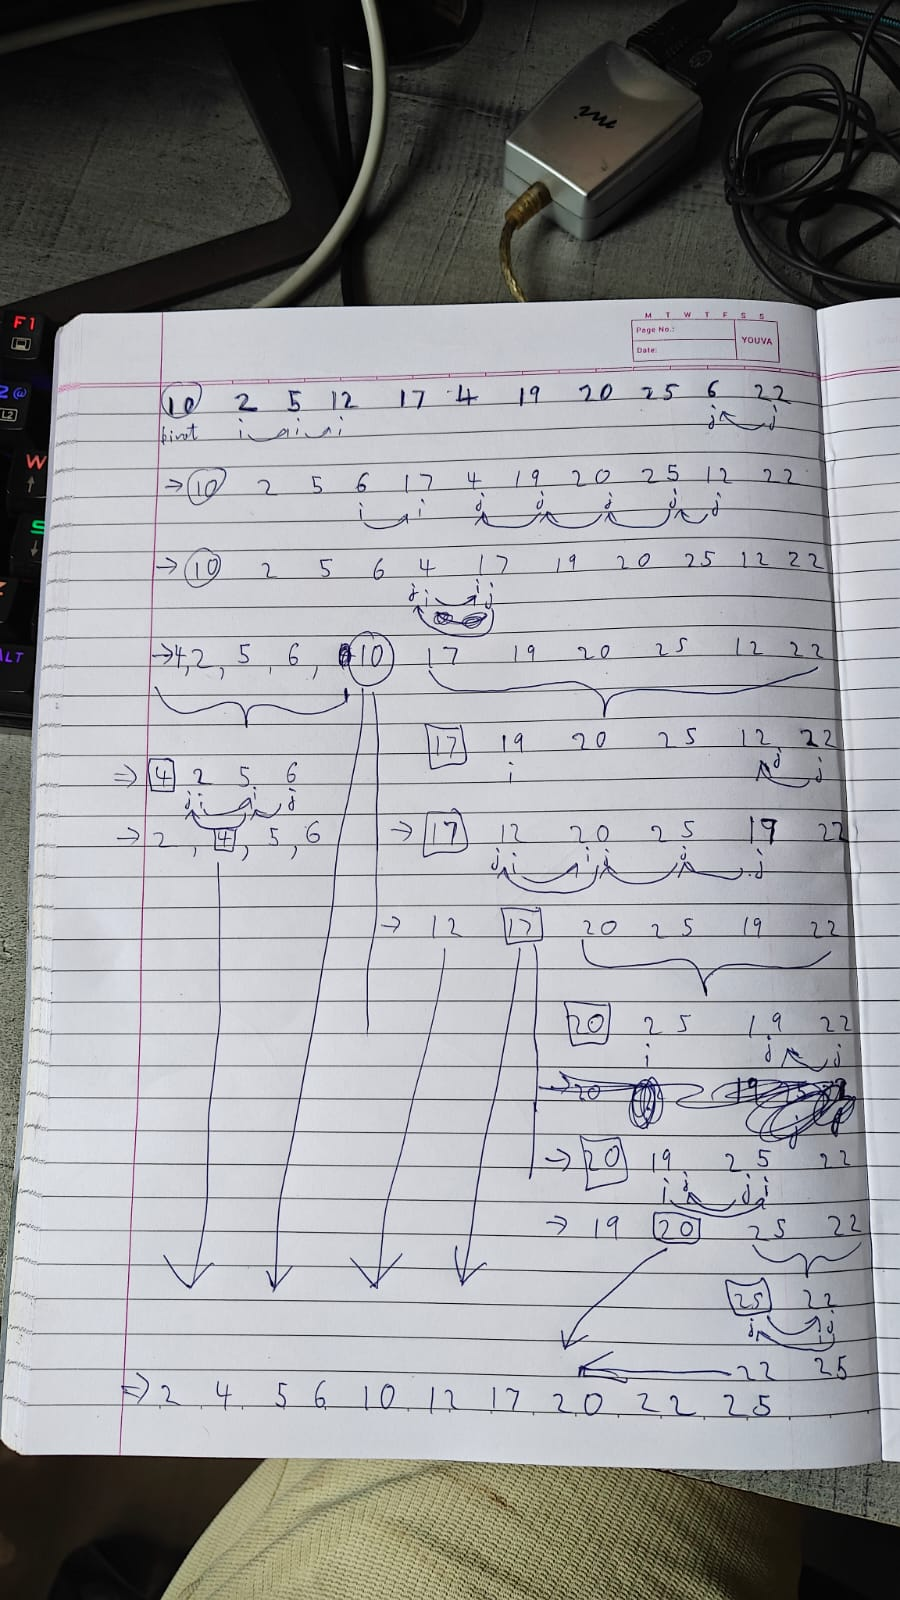 F1
2@
L2
W
S
ALT
mi
M T W T F S S
Page No.:
Date:
YOUVA
10 2 5 12 17 4 19 20 25 6 22
pivot i i i j j
→ 10 2 5 6 17 4 19 20 25 12 22
i i j j j j j
→ 10 2 5 6 4 17 19 20 25 12 22
j i i j
→ 4, 2, 5, 6, 10 17 19 20 25 12 22
17 19 20 25 12 22
i j j
⇒ 4 2 5 6
j i i j
→ 2, 4, 5, 6
→ 17 12 20 25 19 22
j i i j j j
→ 12 17 20 25 19 22
20 25 19 22
i j j
→ 20 19
→ 20 19 25 22
i j j i
→ 19 20 25 22
25 22
j i j
22 25
⇒ 2 4 5 6 10 12 17 20 22 25